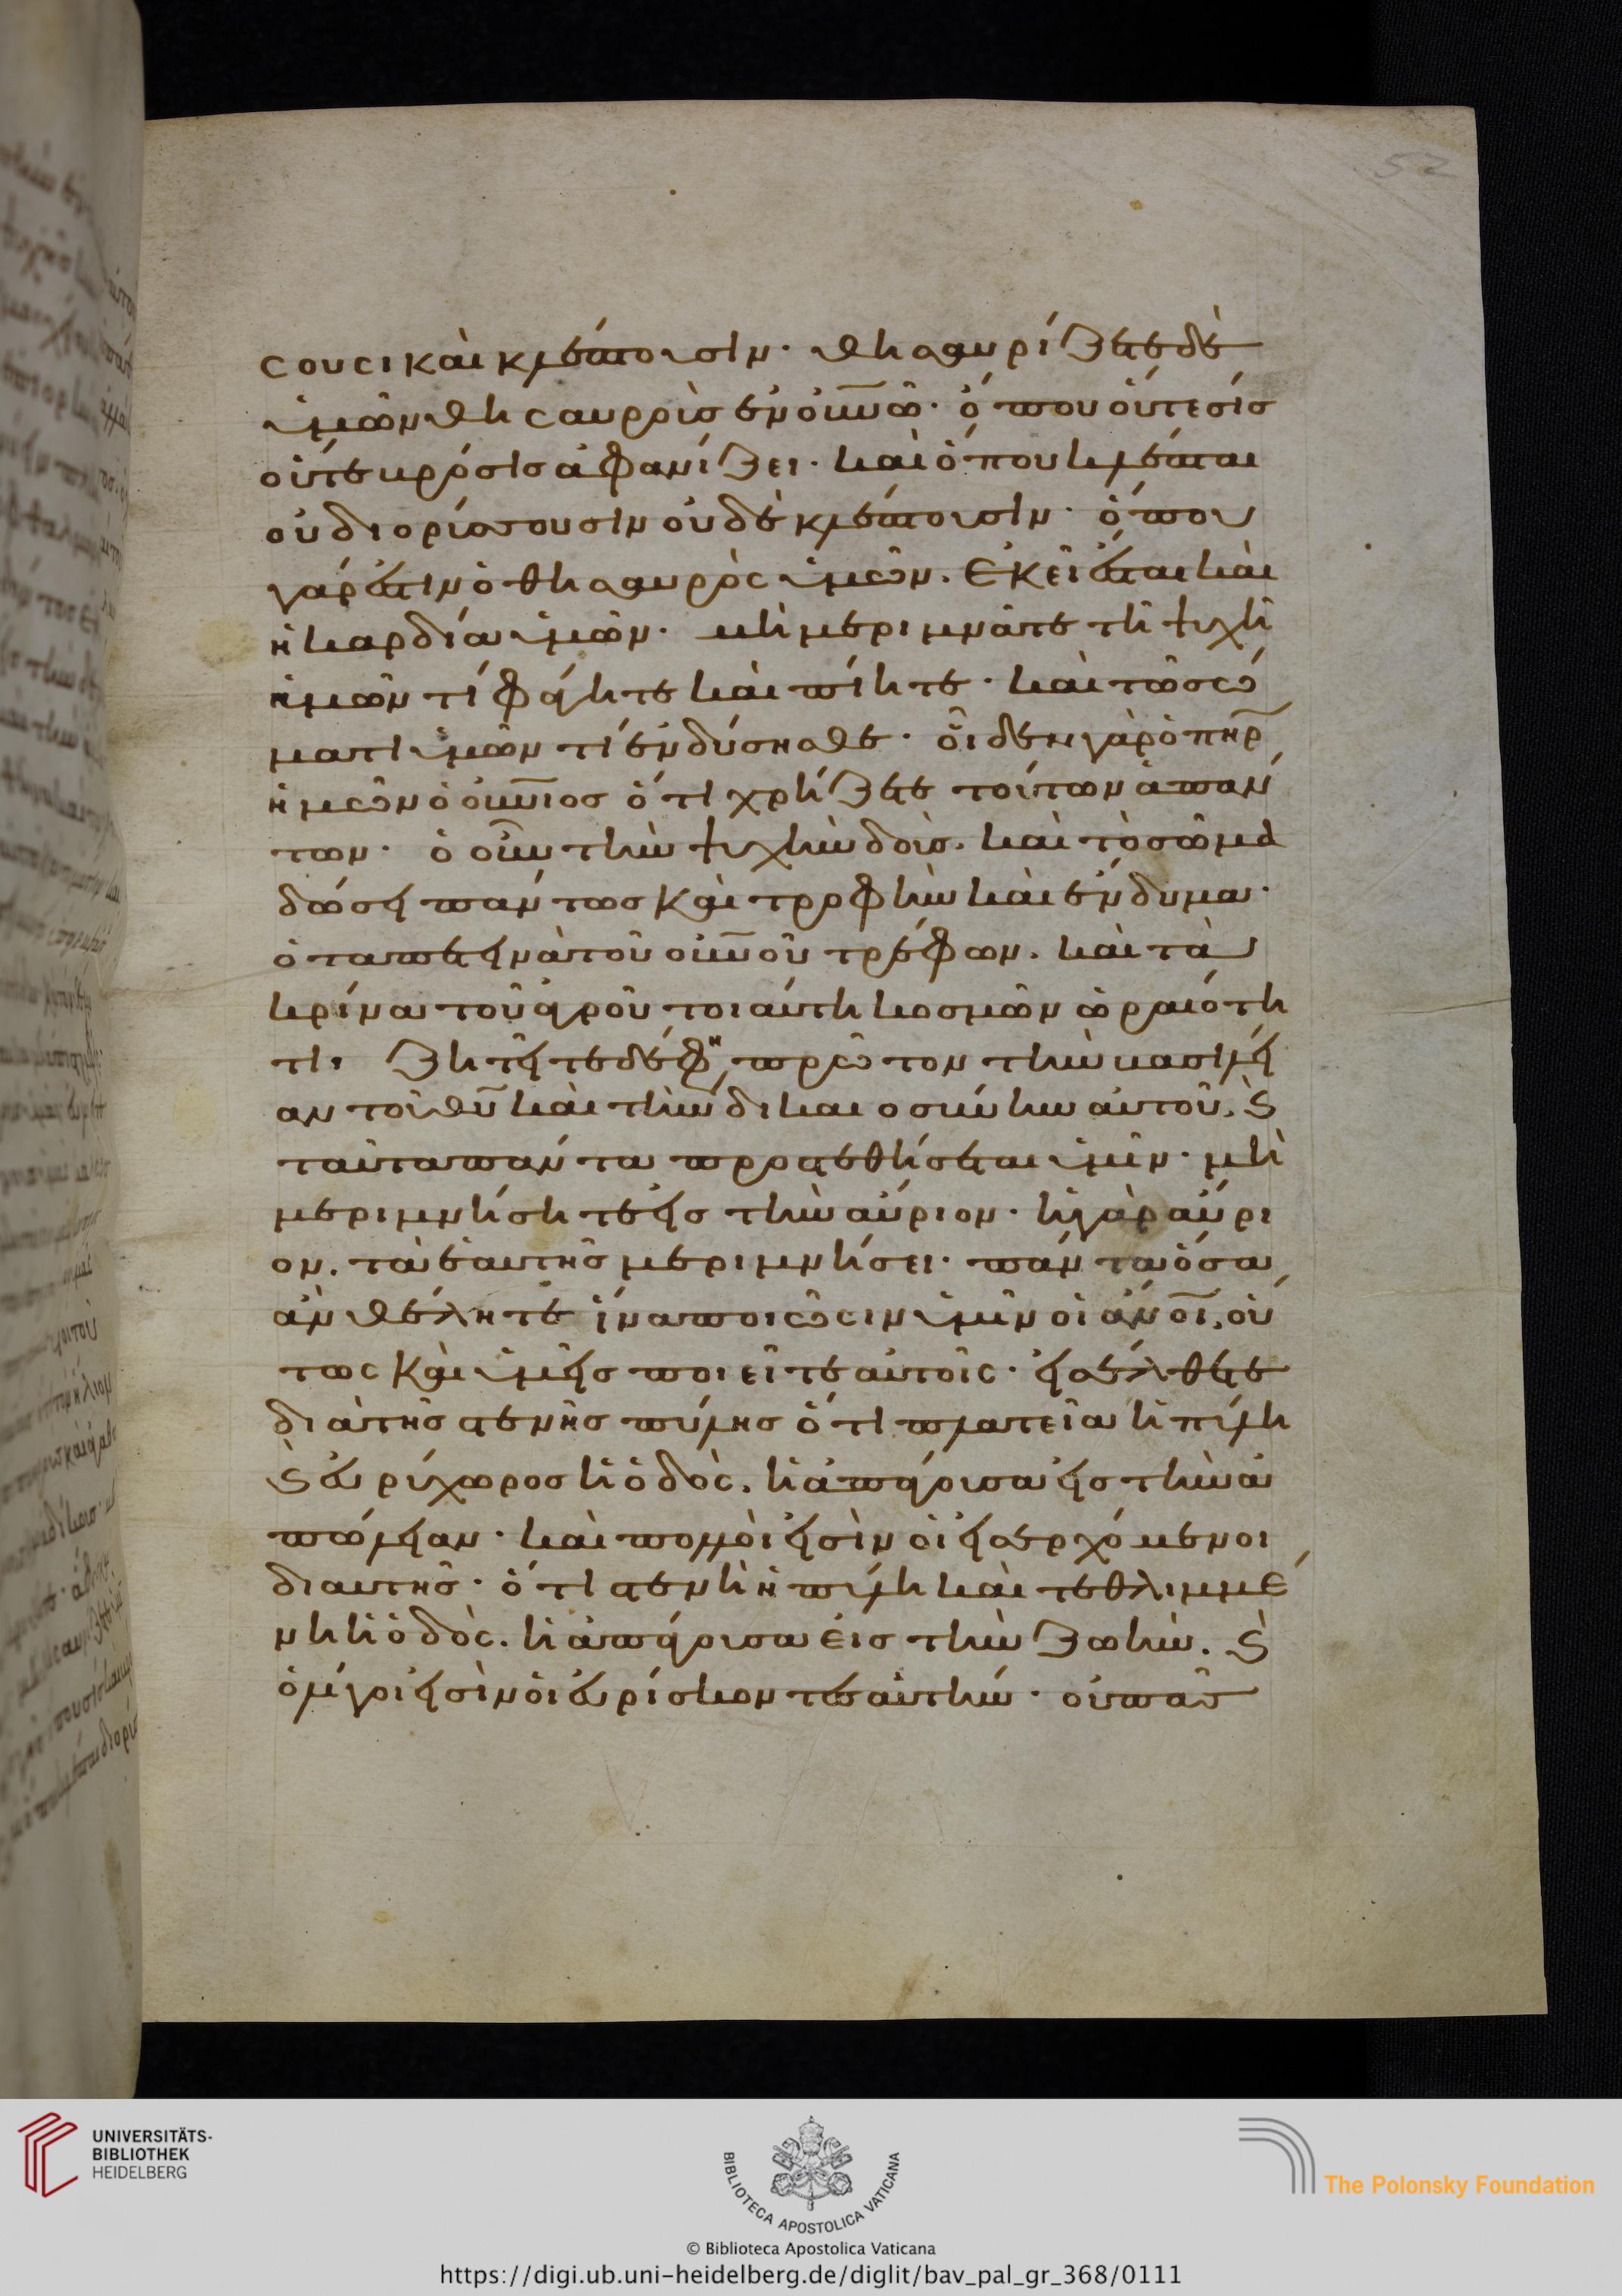 52
σουσι καὶ κλέπτουσιν· θησαυρίζετε δὲ
ὑμῶν θησαυροὺς ἐν οὐν͞ω· ὅπου οὔτε σὶς
οὔτε βρῶσις ἀφανίζει· καὶ ὅπου κλέπται
οὐ διορύσσουσιν οὐδὲ κλέπτουσιν· ὅπου
γάρ ἐστιν ὁ θησαυρὸς ὑμῶν. ἐκεῖ ἔσται καὶ
ἡ καρδία ὑμῶν· μὴ μεριμνᾶτε τῆ ψυχῆ
ἡμῶν τί φάγητε καὶ πίητε· καὶ τῶ σώ
ματι ὑμῶν τί ἐνδύσησθε· οἶδεν γὰρ ὁ π͞ηρ
ἡμῶν ὁ οὐν͞ιος ὅτι χρήζετε τούτων ἁπάν
των· ὁ οὖν τὴν ψυχὴν δοὺς. καὶ τὸ σῶμα
δώσει πάντως καὶ τροφὴν καὶ ἔνδυμα·
ὁ τὰ πετεινὰ τοῦ οὐν͞οῦ τρέφων. καὶ τὰ
κρίνα τοῦ ἀγροῦ τοιαύτη κοσμῶν ὡραιότη
τι· ζητεῖτε δέ φη πρῶτον τὴν βασιλεί
αν τοῦ θ͞υ καὶ τὴν δικαιοσύνην αὐτοῦ. ϛ
ταῦτα πάντα προστεθήσεται ὑμῖν· μὴ
μεριμνήσητε εἰς τὴν αὔριον· ἡ γὰρ αὔρι
ον. τὰ ἑαυτῆς μεριμνήσει· πάντα ὅσα
ἂν θέλητε ἵνα ποιῶσιν ὑμῖν οἱ ἄν͞οι, οὕ
τως καὶ ὑμεῖς ποιεῖτε αὐτοῖς· εἰσέλθετε
διὰ τῆς στενῆς πύλης ὅτι πλατεῖα ἡ πύλη
ϛ εὐρύχωρος ἡ ὁδὸς. ἡ ἀπάγουσα εἰς τὴν ἀ
πώλειαν· καὶ πολλοὶ εἰσὶν οἱ εἰσερχόμενοι
δι αυτῆς· ὅτι στενὴ ἡ πύλη καὶ τεθλιμμέ
νη ἡ ὁδὸς. ἡ ἀπάγουσα εἰς τὴν ζωὴν. ϛ
ὀλίγοι εἰσὶν οἱ εὑρίσκοντες αὐτήν· οὐ πᾶς
UNIVERSITÄTS-
BIBLIOTHEK
HEIDELBERG
BIBLIOTECA APOSTOLICA VATICANA
The Polonsky Foundation
© Biblioteca Apostolica Vaticana
https://digi.ub.uni-heidelberg.de/diglit/bav_pal_gr_368/0111